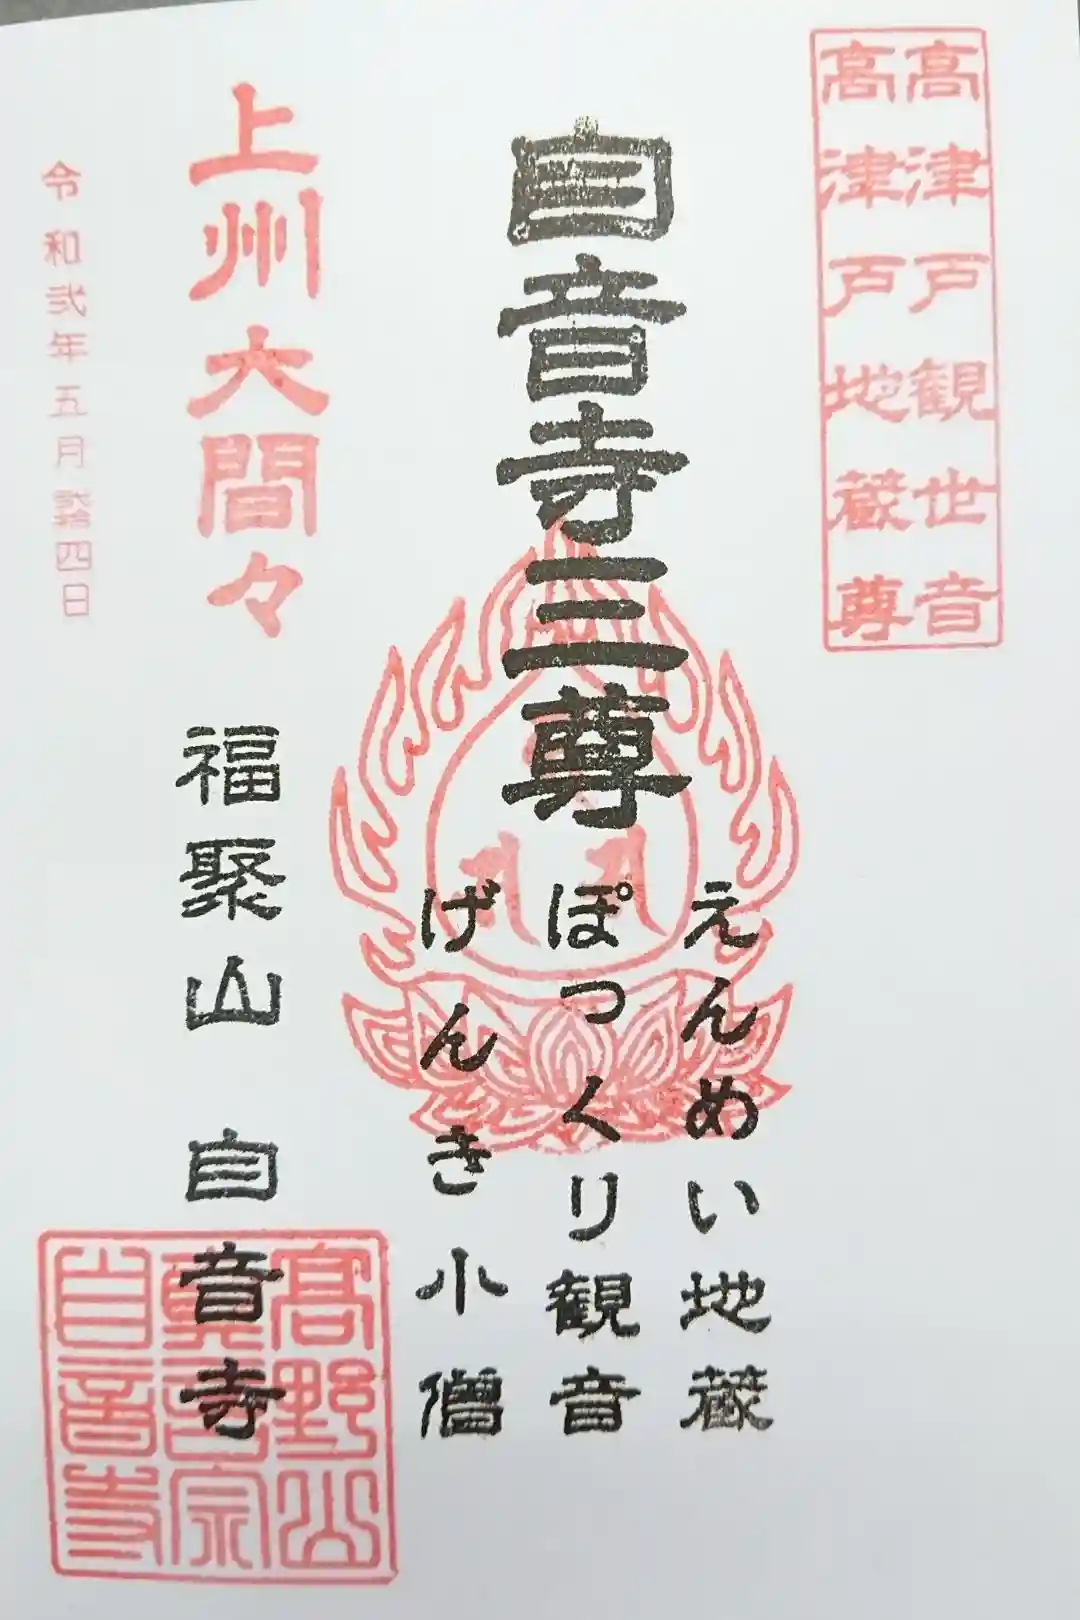 高津戸観世音
高津戸地蔵尊
自音寺三尊
えんめい地蔵
ぽっくり観音
げんき小僧
上州大間々
福聚山 自音寺
高野山
真言宗
自音寺
令和弐年五月 四日